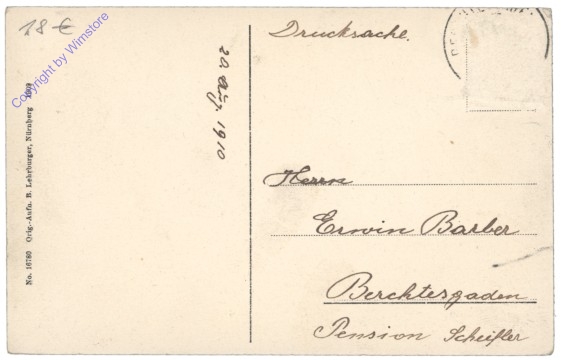 18 €
Copyright by Wimstore
No. 16780 Orig.-Aufn. B. Lehrburger, Nürnberg 1909
20 Aug. 1910
Drucksache.
Herrn
Erwin Barber
Berchtesgaden
Pension